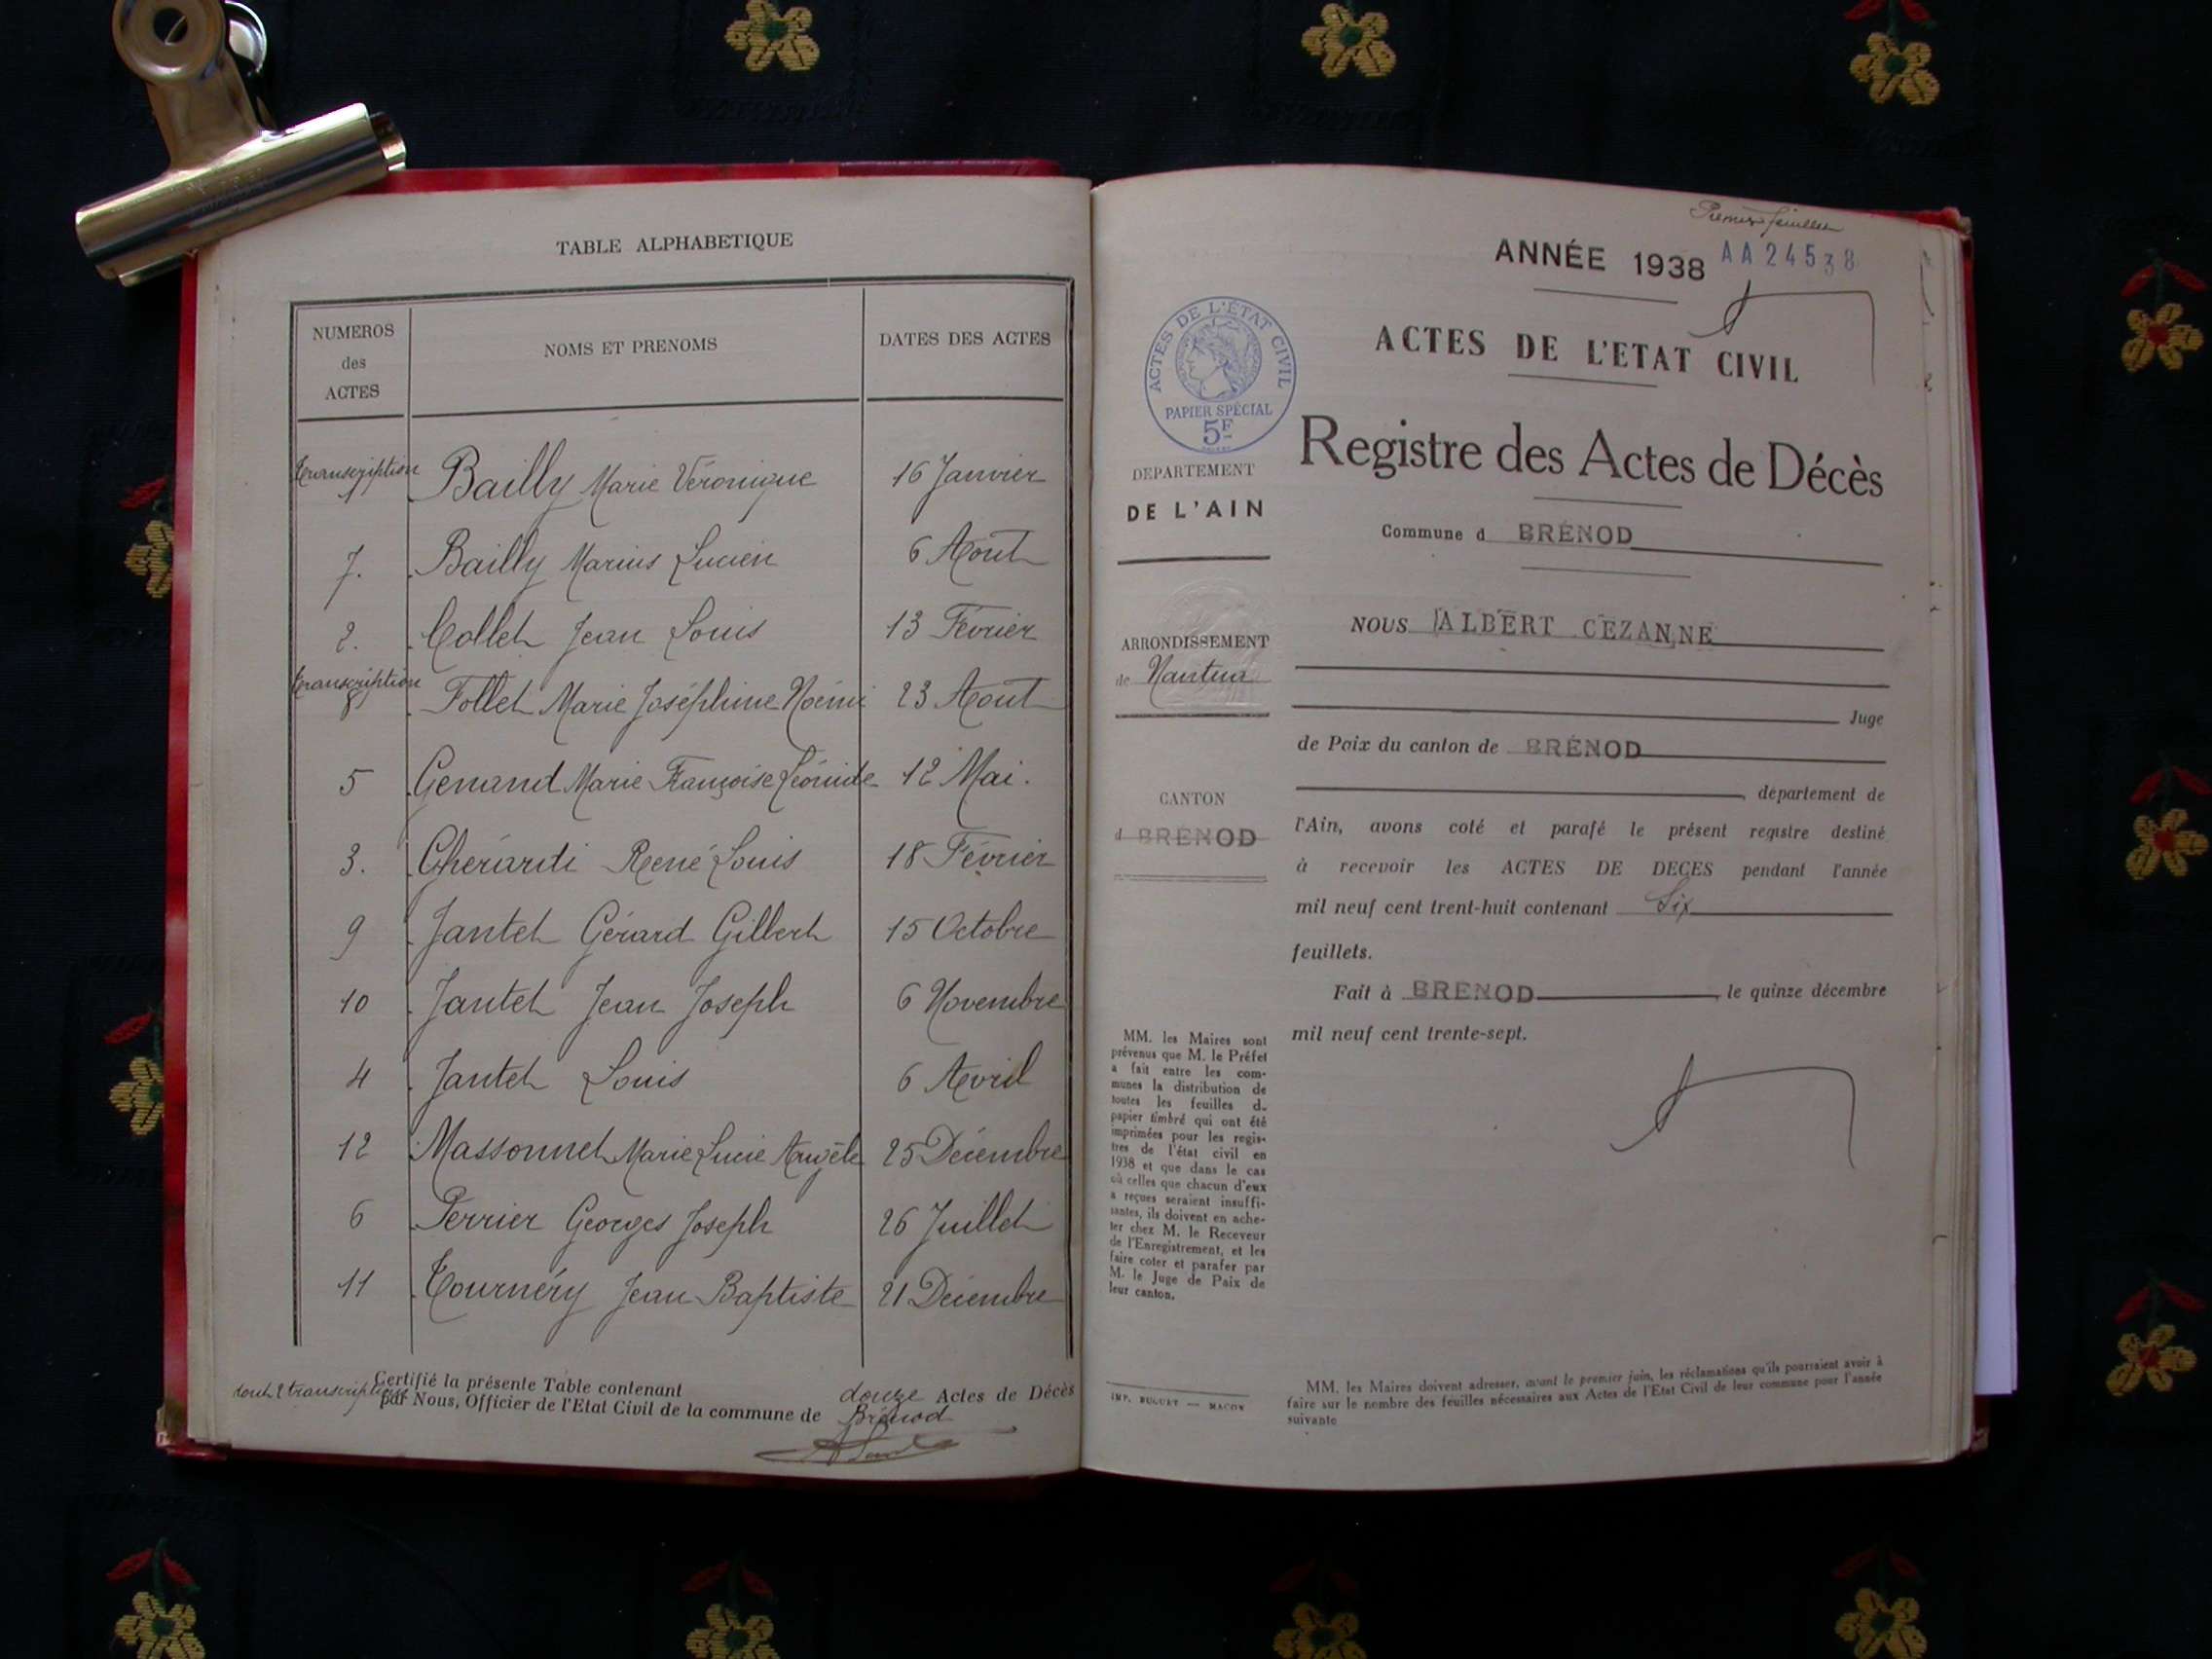 TABLE ALPHABETIQUE
NUMEROS des ACTES
NOMS ET PRENOMS
DATES DES ACTES
transcription 1 Bailly Marie Véronique 16 Janvier
7. Bailly Marius Lucien 6 Aout
2. Collet Jean Louis 13 Février
transcription 8 Follet Marie Joséphine Noémi 23 Aout
5 Genand Marie Françoise Léonide 12 Mai.
3. Ghérardi René Louis 18 Février
9 Jantet Gérard Gilbert 15 Octobre
10 Jantet Jean Joseph 6 Novembre
4 Jantet Louis 6 Avril
12 Massonnet Marie Lucie Angèle 25 Décembre
6 Perrier Georges Joseph 26 Juillet
11 Tournéry Jean Baptiste 21 Décembre
Certifié la présente Table contenant douze Actes de Décès
dont 2 transcriptions
par Nous, Officier de l'Etat Civil de la commune de Brénod
Premier feuillet
ANNÉE 1938 AA24538
ACTES DE L'ÉTAT CIVIL
PAPIER SPÉCIAL
5F
ACTES DE L'ETAT CIVIL
Registre des Actes de Décès
DEPARTEMENT
DE L'AIN
Commune d BRÉNOD
ARRONDISSEMENT
de Nantua
NOUS ALBERT CEZANNE
Juge
de Paix du canton de BRÉNOD
département de
CANTON
d BRÉNOD
l'Ain, avons coté et parafé le présent registre destiné
à recevoir les ACTES DE DECES pendant l'année
mil neuf cent trent-huit contenant Six
feuillets.
Fait à BRENOD, le quinze décembre
mil neuf cent trente-sept.
MM. les Maires sont
prévenus que M. le Préfet
a fait entre les com-
munes la distribution de
toutes les feuilles d.
papier timbré qui ont été
imprimées pour les regis-
tres de l'état civil en
1938 et que dans le cas
où celles que chacun d'eux
a reçues seraient insuffi-
santes, ils doivent en ache-
ter chez M. le Receveur
de l'Enregistrement, et les
faire coter et parafer par
M. le Juge de Paix de
leur canton.
IMP. BUGUET — MACON
MM. les Maires doivent adresser, avant le premier juin, les réclamations qu'ils pourraient avoir à
faire sur le nombre des feuilles nécessaires aux Actes de l'Etat Civil de leur commune pour l'année
suivante